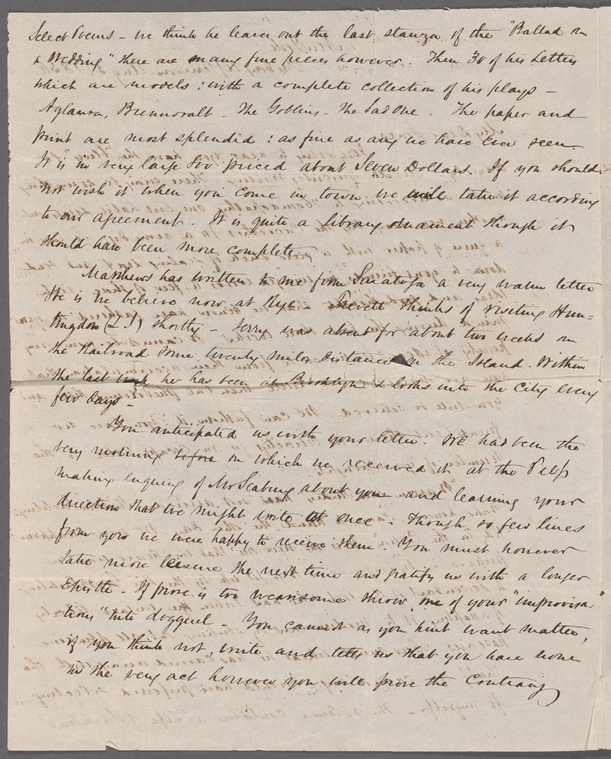 Select Poems - we think he leaves out the last stanza of the "Ballad on
a Wedding" there are many fine pieces however. Then 30 of his Letters
which are models : with a complete collection of his plays -
Aglaura, Brennoralt - The Goblins - the Sad One. The paper and
print are most splendid : as fine as any we have ever seen.
It is in very large 8vo priced about Seven Dollars. If you should
not wish it when you come in town we will take it according
to our agreement. It is quite a library ornament though it
should have been more complete
Matthews has written to me from Saratoga a very warm letter
He is we believe now at Rye - thinks of visiting Hun-
tingdon (L.I) shortly - Jerry was about for about two weeks on
the Railroad some twenty miles distance on the Island. Within
the last he has been at Brooklyn & looks into the City every
few days -
You anticipated us with your letter. We had been the
very morning before on which we received it at the
making enquiry of about you and learning your
direction that we might write at once. Though so few lines
from you we were happy to receive them. You must however
take more leisure the next time and gratify us with a longer
Epistle - If prose is too wearisome throw me of your "improvisa-
tions" into doggrel - You cannot as you hint want matter,
if you think not, write and tell us that you have none
in the very act however you will prove the contrary